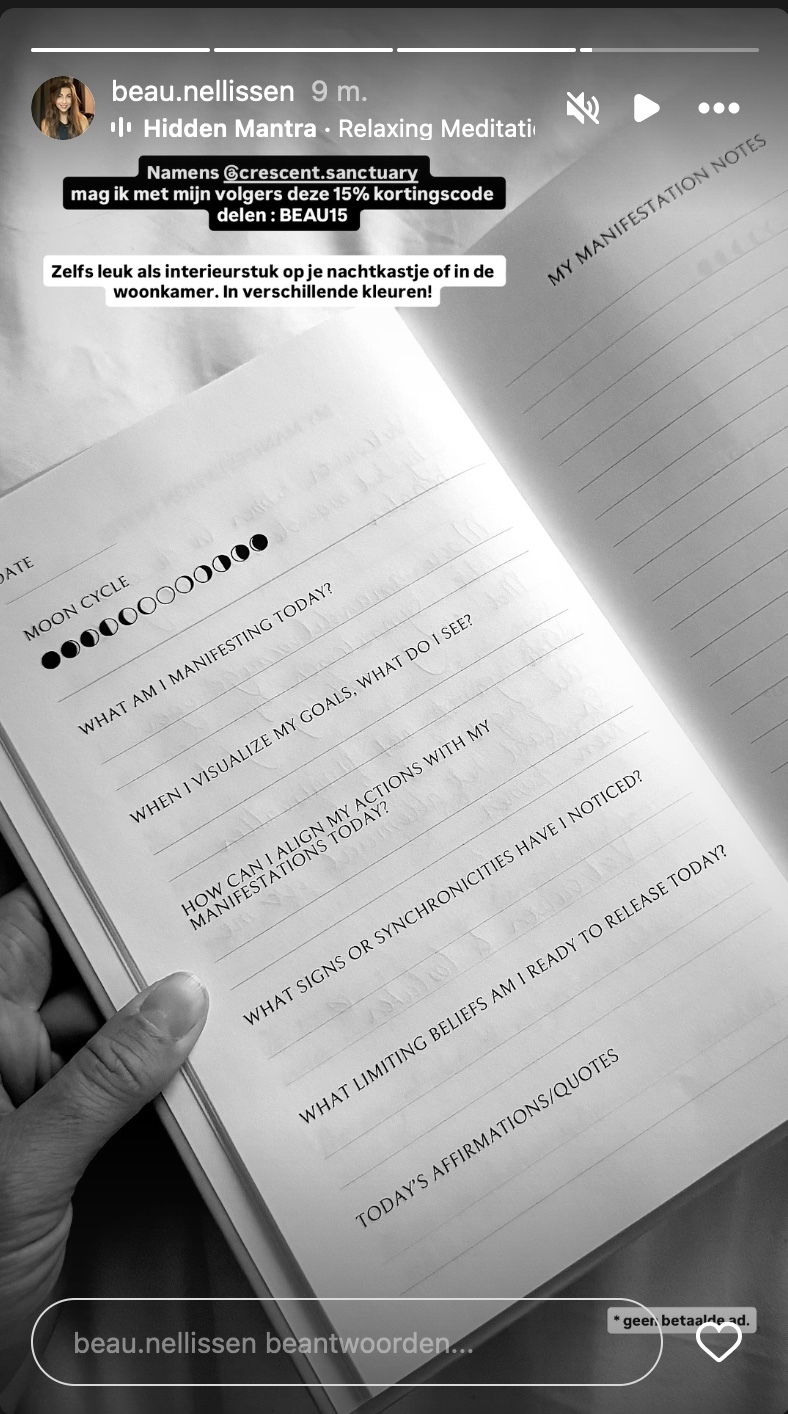 beau.nellissen 9 m.
Hidden Mantra · Relaxing Meditati
Namens @crescent.sanctuary
mag ik met mijn volgers deze 15% kortingscode
delen : BEAU15
Zelfs leuk als interieurstuk op je nachtkastje of in de
woonkamer. In verschillende kleuren!
MY MANIFESTATION NOTES
DATE
MOON CYCLE
WHAT AM I MANIFESTING TODAY?
WHEN I VISUALIZE MY GOALS, WHAT DO I SEE?
HOW CAN I ALIGN MY ACTIONS WITH MY
MANIFESTATIONS TODAY?
WHAT SIGNS OR SYNCHRONICITIES HAVE I NOTICED?
WHAT LIMITING BELIEFS AM I READY TO RELEASE TODAY?
TODAY'S AFFIRMATIONS/QUOTES
* geen betaalde ad.
beau.nellissen beantwoorden...